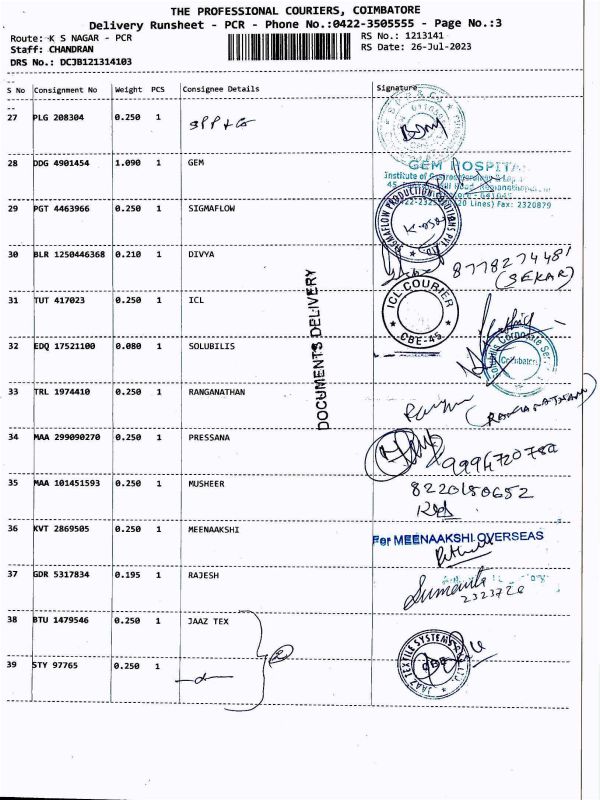 THE PROFESSIONAL COURIERS, COIMBATORE
Delivery Runsheet - PCR - Phone No.:0422-3505555 - Page No.:3
Route: K S NAGAR - PCR RS No.: 1213141
Staff: CHANDRAN RS Date: 26-Jul-2023
DRS No.: DCJB121314103
S No Consignment No Weight PCS Consignee Details Signature
27 PLG 208304 0.250 1 SPP & Co
28 DDG 4901454 1.090 1 GEM
GEM HOSPITAL
Institute of
Lines) Fax: 2320879
29 PGT 4463966 0.250 1 SIGMAFLOW
SIGMAFLOW PRODUCTION SOLUTIONS PVT LTD
30 BLR 1250446368 0.210 1 DIVYA
8778274481
(SEKAR)
31 TUT 417023 0.250 1 ICL
ICL COURIER
CBE-45
DOCUMENTS DELIVERY
32 EDQ 17521100 0.080 1 SOLUBILIS
Corporate Ser
Coimbatore
33 TRL 1974410 0.250 1 RANGANATHAN
(RANGANATHAN)
34 MAA 299090270 0.250 1 PRESSANA
9994720780
35 MAA 101451593 0.250 1 MUSHEER
8220150652
36 KVT 2869505 0.250 1 MEENAAKSHI
For MEENAAKSHI OVERSEAS
37 GDR 5317834 0.195 1 RAJESH
2323726
38 BTU 1479546 0.250 1 JAAZ TEX
2
JAAZ TEXTILE SYSTEMS
39 STY 97765 0.250 1 —d—